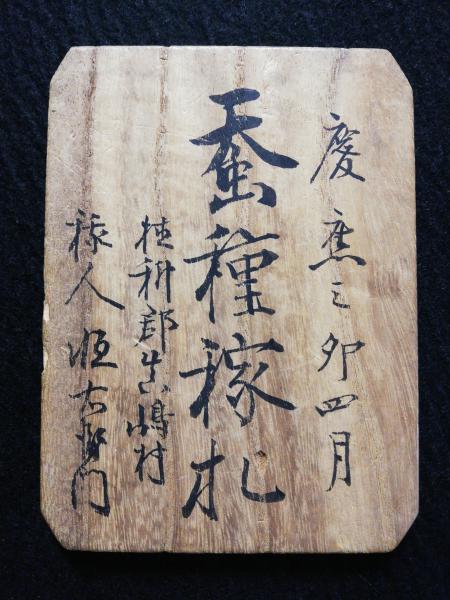 慶應三卯四月
蚕種稼札
埴科郡嶋村
稼人 恒右衛門